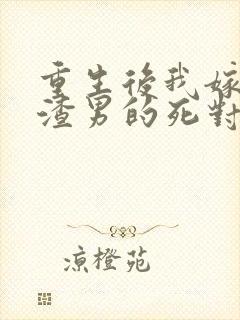 重生後我嫁
渣男的死對
涼橙苑